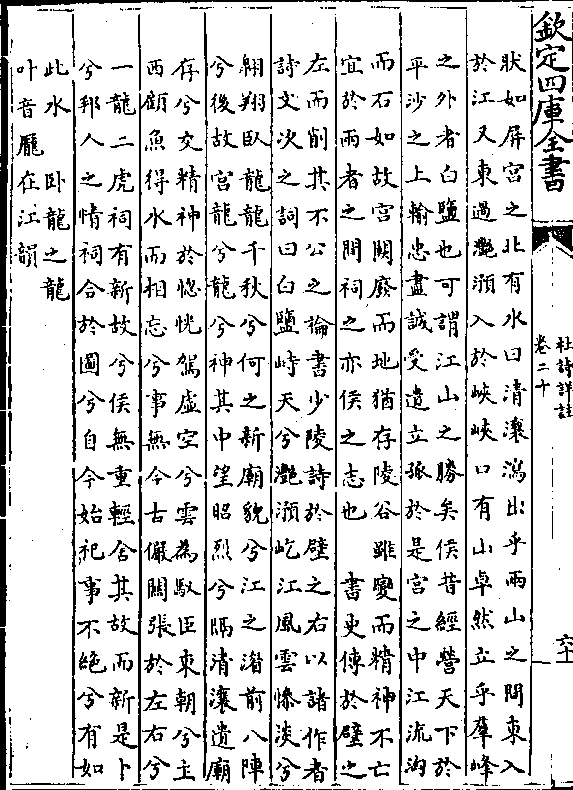 欽定四庫全書
杜詩詳註
卷二十
六十一
狀如屏宮之北有水曰清瀼瀉出乎兩山之間東入
於江又東過灔澦入於峽峽口有山卓然立乎羣峰
之外者白鹽也可謂江山之勝矣侯昔經營天下於
平沙之上輸忠盡誠受遺立孤於是宮之中江流洶
而石如故宮闕廢而地猶存陵谷雖變而精神不亡
宜於兩者之間祠之亦侯之志也　書史傳於壁之
左而削其不公之論書少陵詩於壁之右以諸作者
詩文次之詞曰白鹽峙天兮灔澦屹江風雲慘淡兮
翱翔臥龍龍千秋兮何之新廟貌兮江之渚前八陣
兮後故宮龍兮龍兮神其中望昭烈兮隔清瀼遺廟
存兮交精神於惚恍駕虛空兮雲為馭臣東朝兮主
西顧魚得水而相忘兮事無今古儼關張於左右兮
一龍二虎祠有新故兮侯無重輕舍其故而新是卜
兮邦人之情祠合於圖兮自今始祀事不絶兮有如
此水　臥龍之龍
叶音龎在江韻